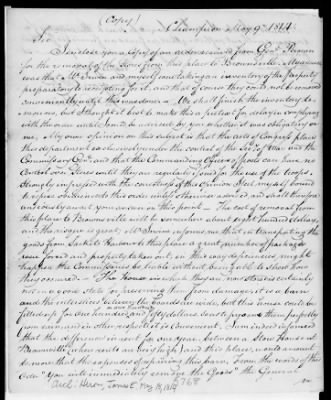 (Copy)
Champion May 9th 1814
Sir
I inclose you a Copy of an order received from Genl. Brown
for the removal of the stores from this place to Brownville. My answer
was that Mr. Irwin and myself were taking an inventory of the property
preparatory to receipting for it, and that of course they could not be removed
conveniently until this was done. We shall finish the inventory to-
morrow, but I thought it best to make this a pretext for delay in complying
with the order until I could be advised by you whether it was obligatory on
me. My own opinion on this subject is that the acts of Congress place
this department exclusively under the control of the Secy. of War and the
Commissary Genl. and that the Commanding Officers of posts can have no
Control over Stores until they are regularly issued for the use of the troops.
Strongly impressed with the correctness of this Opinion I feel myself bound
to refuse obedience to this order until otherwise advised and shall therefore
anxiously await your answer on this point. The cost of removal from
this place to Brownville will be somewhere about eight hundred dollars,
and the risque is great; Mr Irwin informs me that in transporting the
goods from Sackets Harbour to this place a great number of packages
were forced and property taken out, in this way deficiencies might
happen the Commissaries be liable without being able to shew how
they occurred. The House in which they are now stored is certainly
not in a good state for preserving them from damage, it is a barn
and the interstices between the boards are wide, but this house could be
fitted up for one hundred and fifty dollars so as to preserve them perfectly
from rain, and in other respects is convenient. I am indeed informed
that the difference in rent for one year, between a Store House at
Brownville (where rents are very high) and this place, would amount
to more than the expences of repairing this barn. From the words of the
Order "You will immediately convey the Goods" the General
Aud: Heron, James E, May 18, 1814 5768